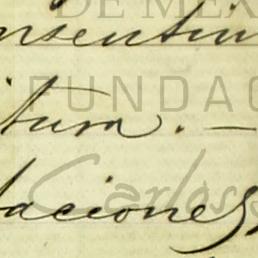 DE MÉX
nsentin
FUNDAC
itura. —
Carlos
taciones,